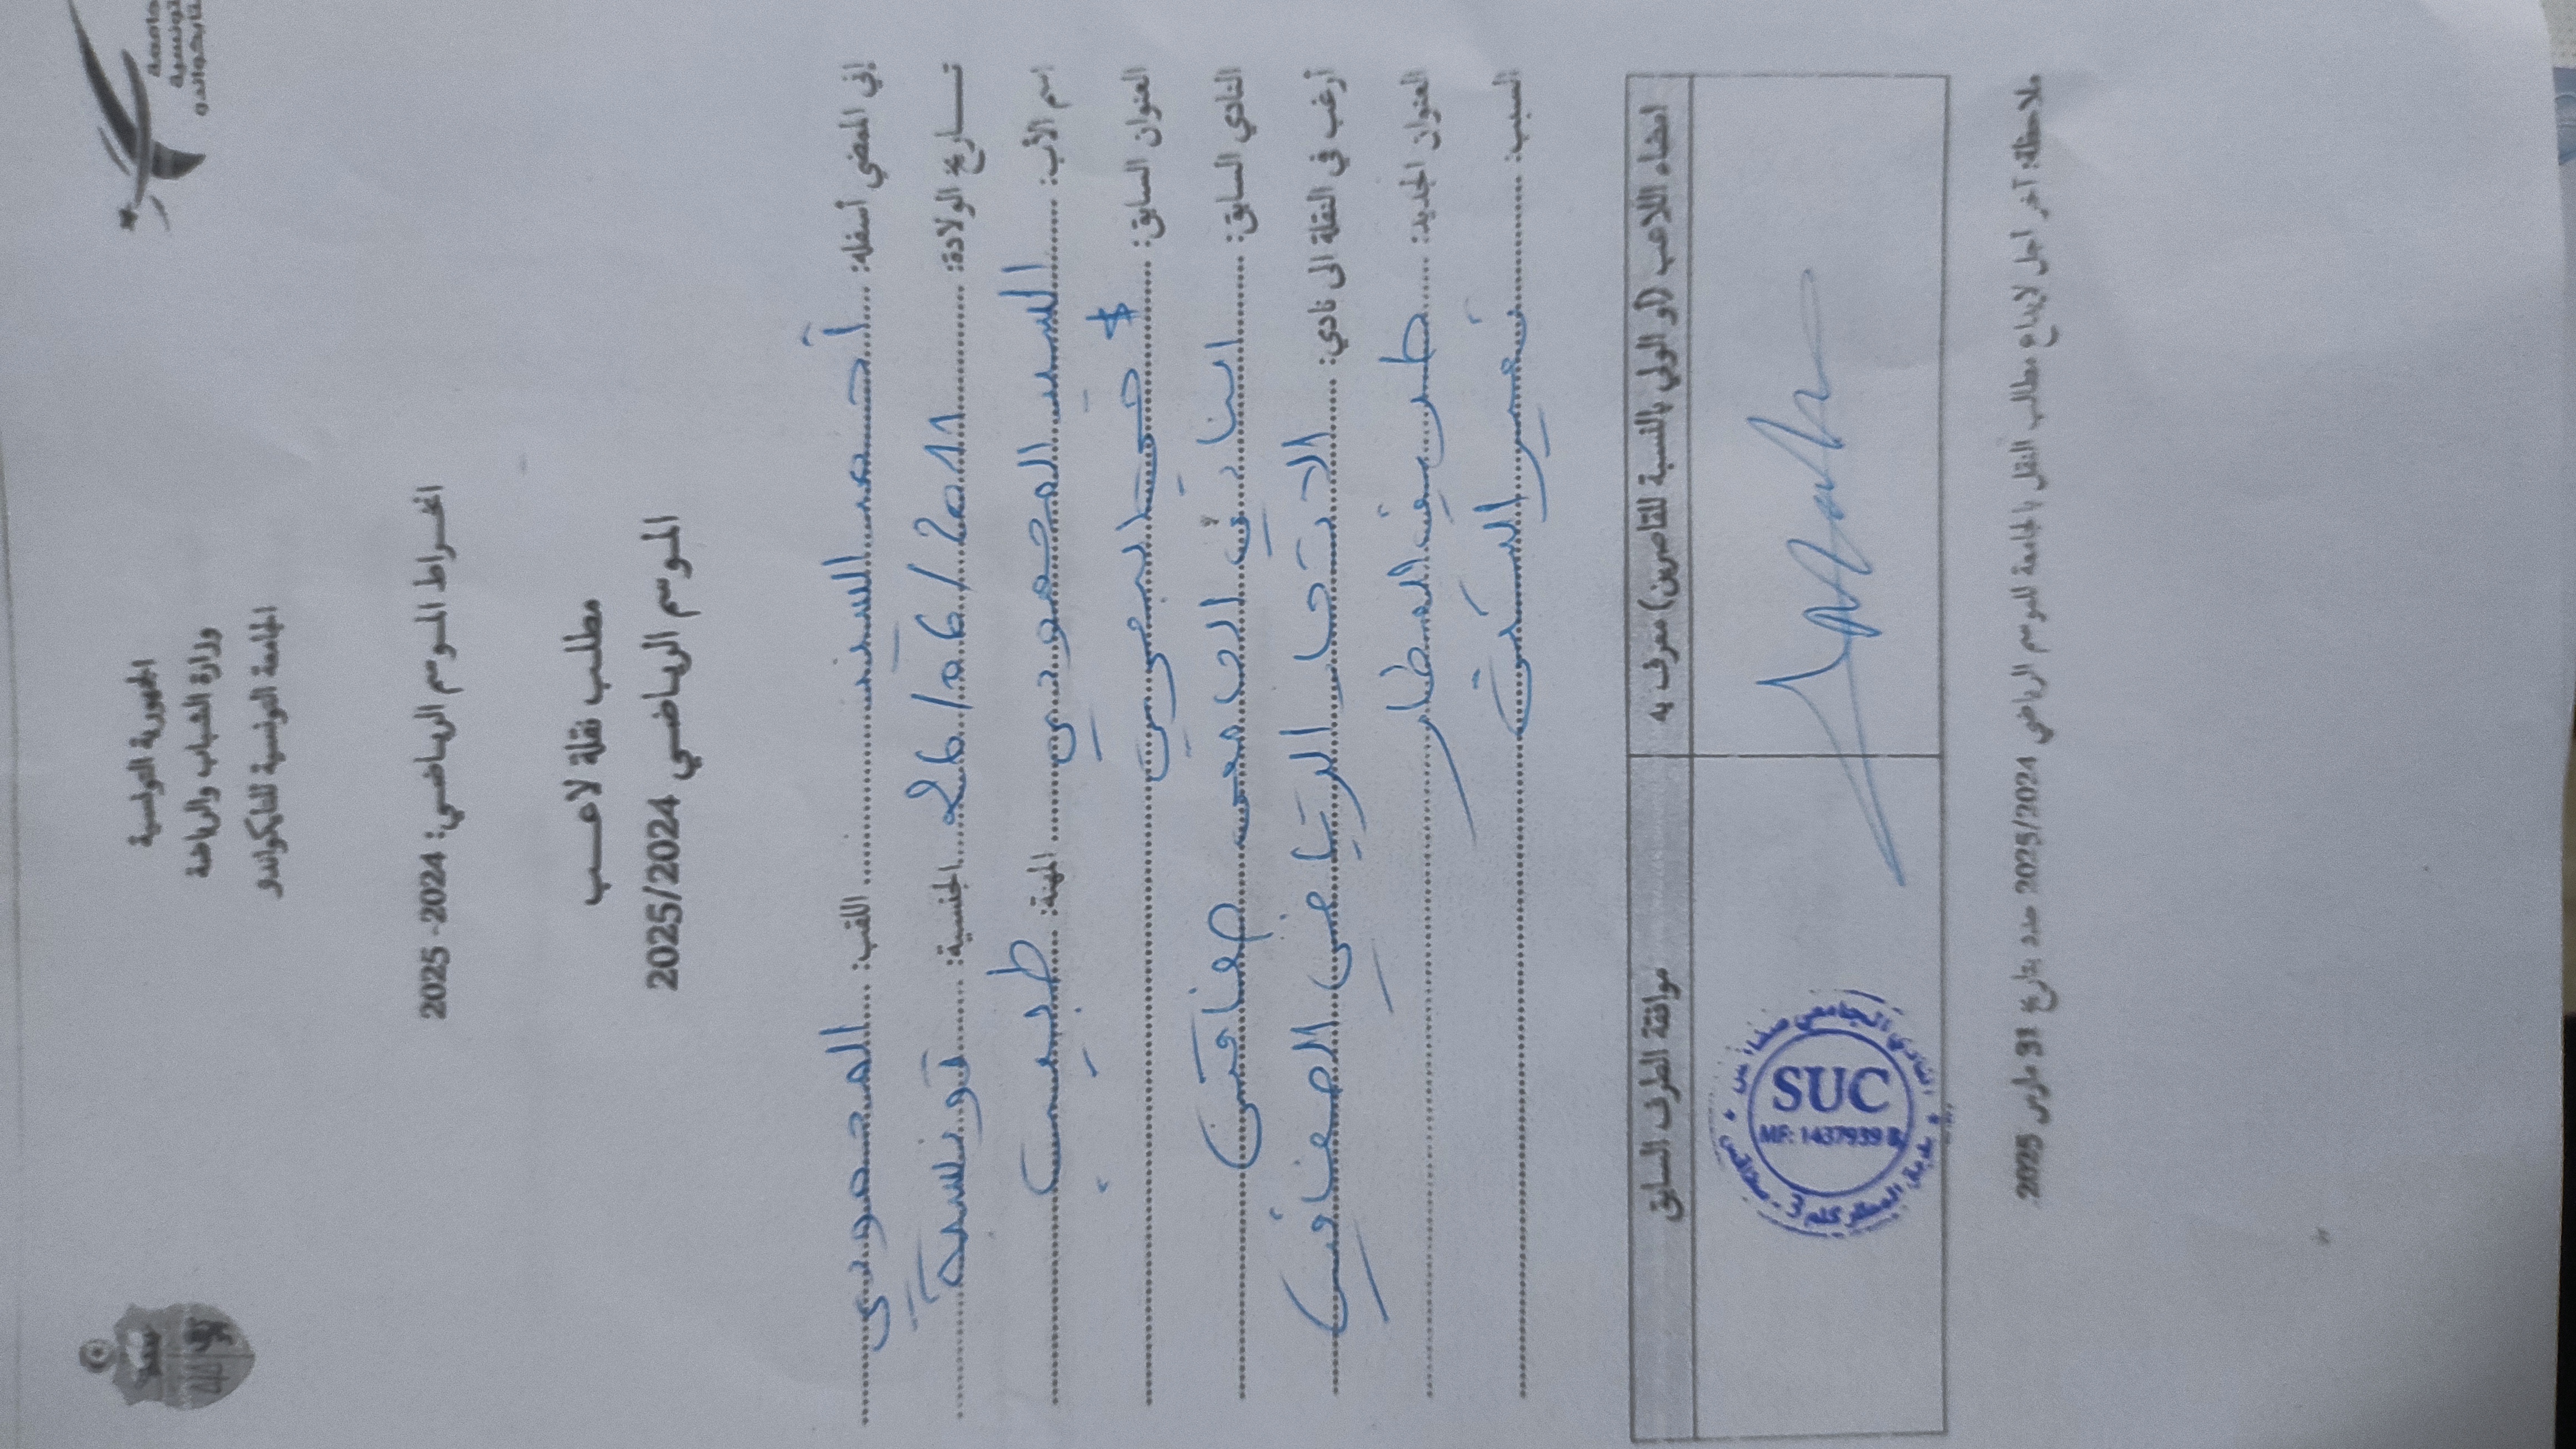 الجمهورية التونسية
وزارة الشباب والرياضة
الجامعة التونسية للتايكواندو
انخراط الموسم الرياضي: 2024-2025
مطلب نقلة لاعب
الموسم الرياضي 2025/2024
إني الممضي أسفله: أحمد السيد اللقب: المحمودي
تاريخ الولادة: 26/06/2011 الجنسية: تونسية
اسم الأب: السيد المحمودي المهنة: طبيب
العنوان السابق:
النادي السابق: النادي الجامعي صفاقس
أرغب في النقلة الى نادي: الاتحاد الرياضي الصفاقسي
العنوان الجديد: طريق المطار
السبب: تغيير السكن
امضاء اللاعب (أو الولي بالنسبة للقاصرين) معرف به
موافقة الطرف السابق
النادي الجامعي صفاقس
SUC
MF: 1437939
ملاحظة: آخر اجل لإيداع مطالب النقل بالجامعة للموسم الرياضي 2025/2024 حدد بتاريخ 31 مارس 2025